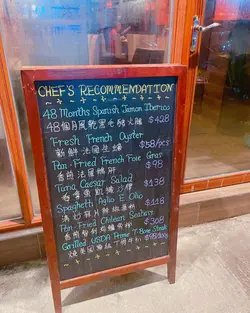 CHEF'S RECOMMENDATION
48 Months Spanish Jamon Iberico
48個月風乾黑毛豬火腿 $428
Fresh French Oyster
新鮮法國生蠔 $58/pcs
Pan-Fried French Foie Gras
香煎法國鴨肝 $98
Tuna Caesar Salad
吞拿魚凱撒沙律 $138
Spaghetti Aglio E Olio
$118
Pan Fried Chilean Seabass
$308
Grilled USDA Prime T-Bone Steak